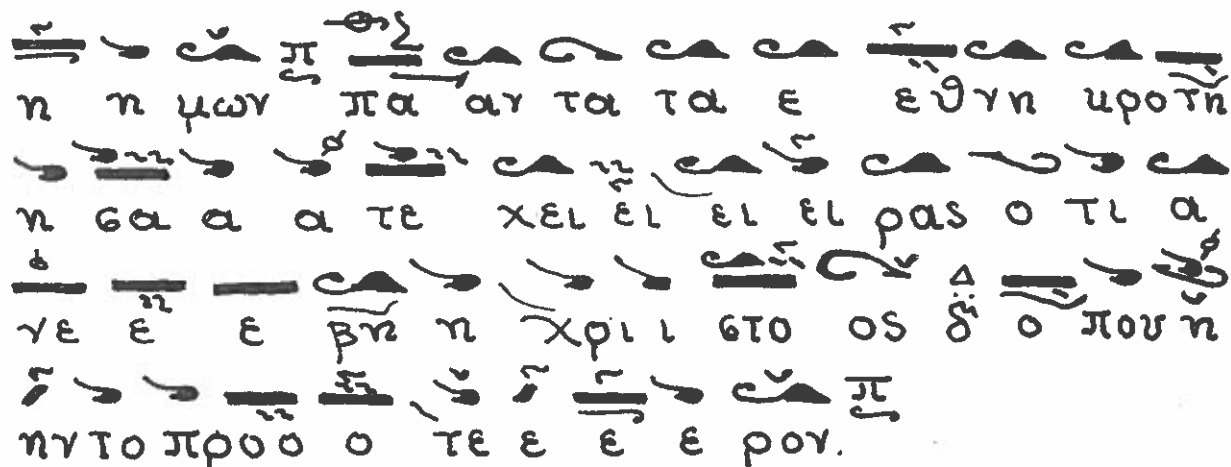 η η μων πα αν τα τα ε ε θνη κρο τη
η σα α α τε χει ει ει ει ρας ο τι α
νε ε ε βη η χρι ι στο ος δι ο που η
ην το προ ο ο τε ε ε ε ρον.